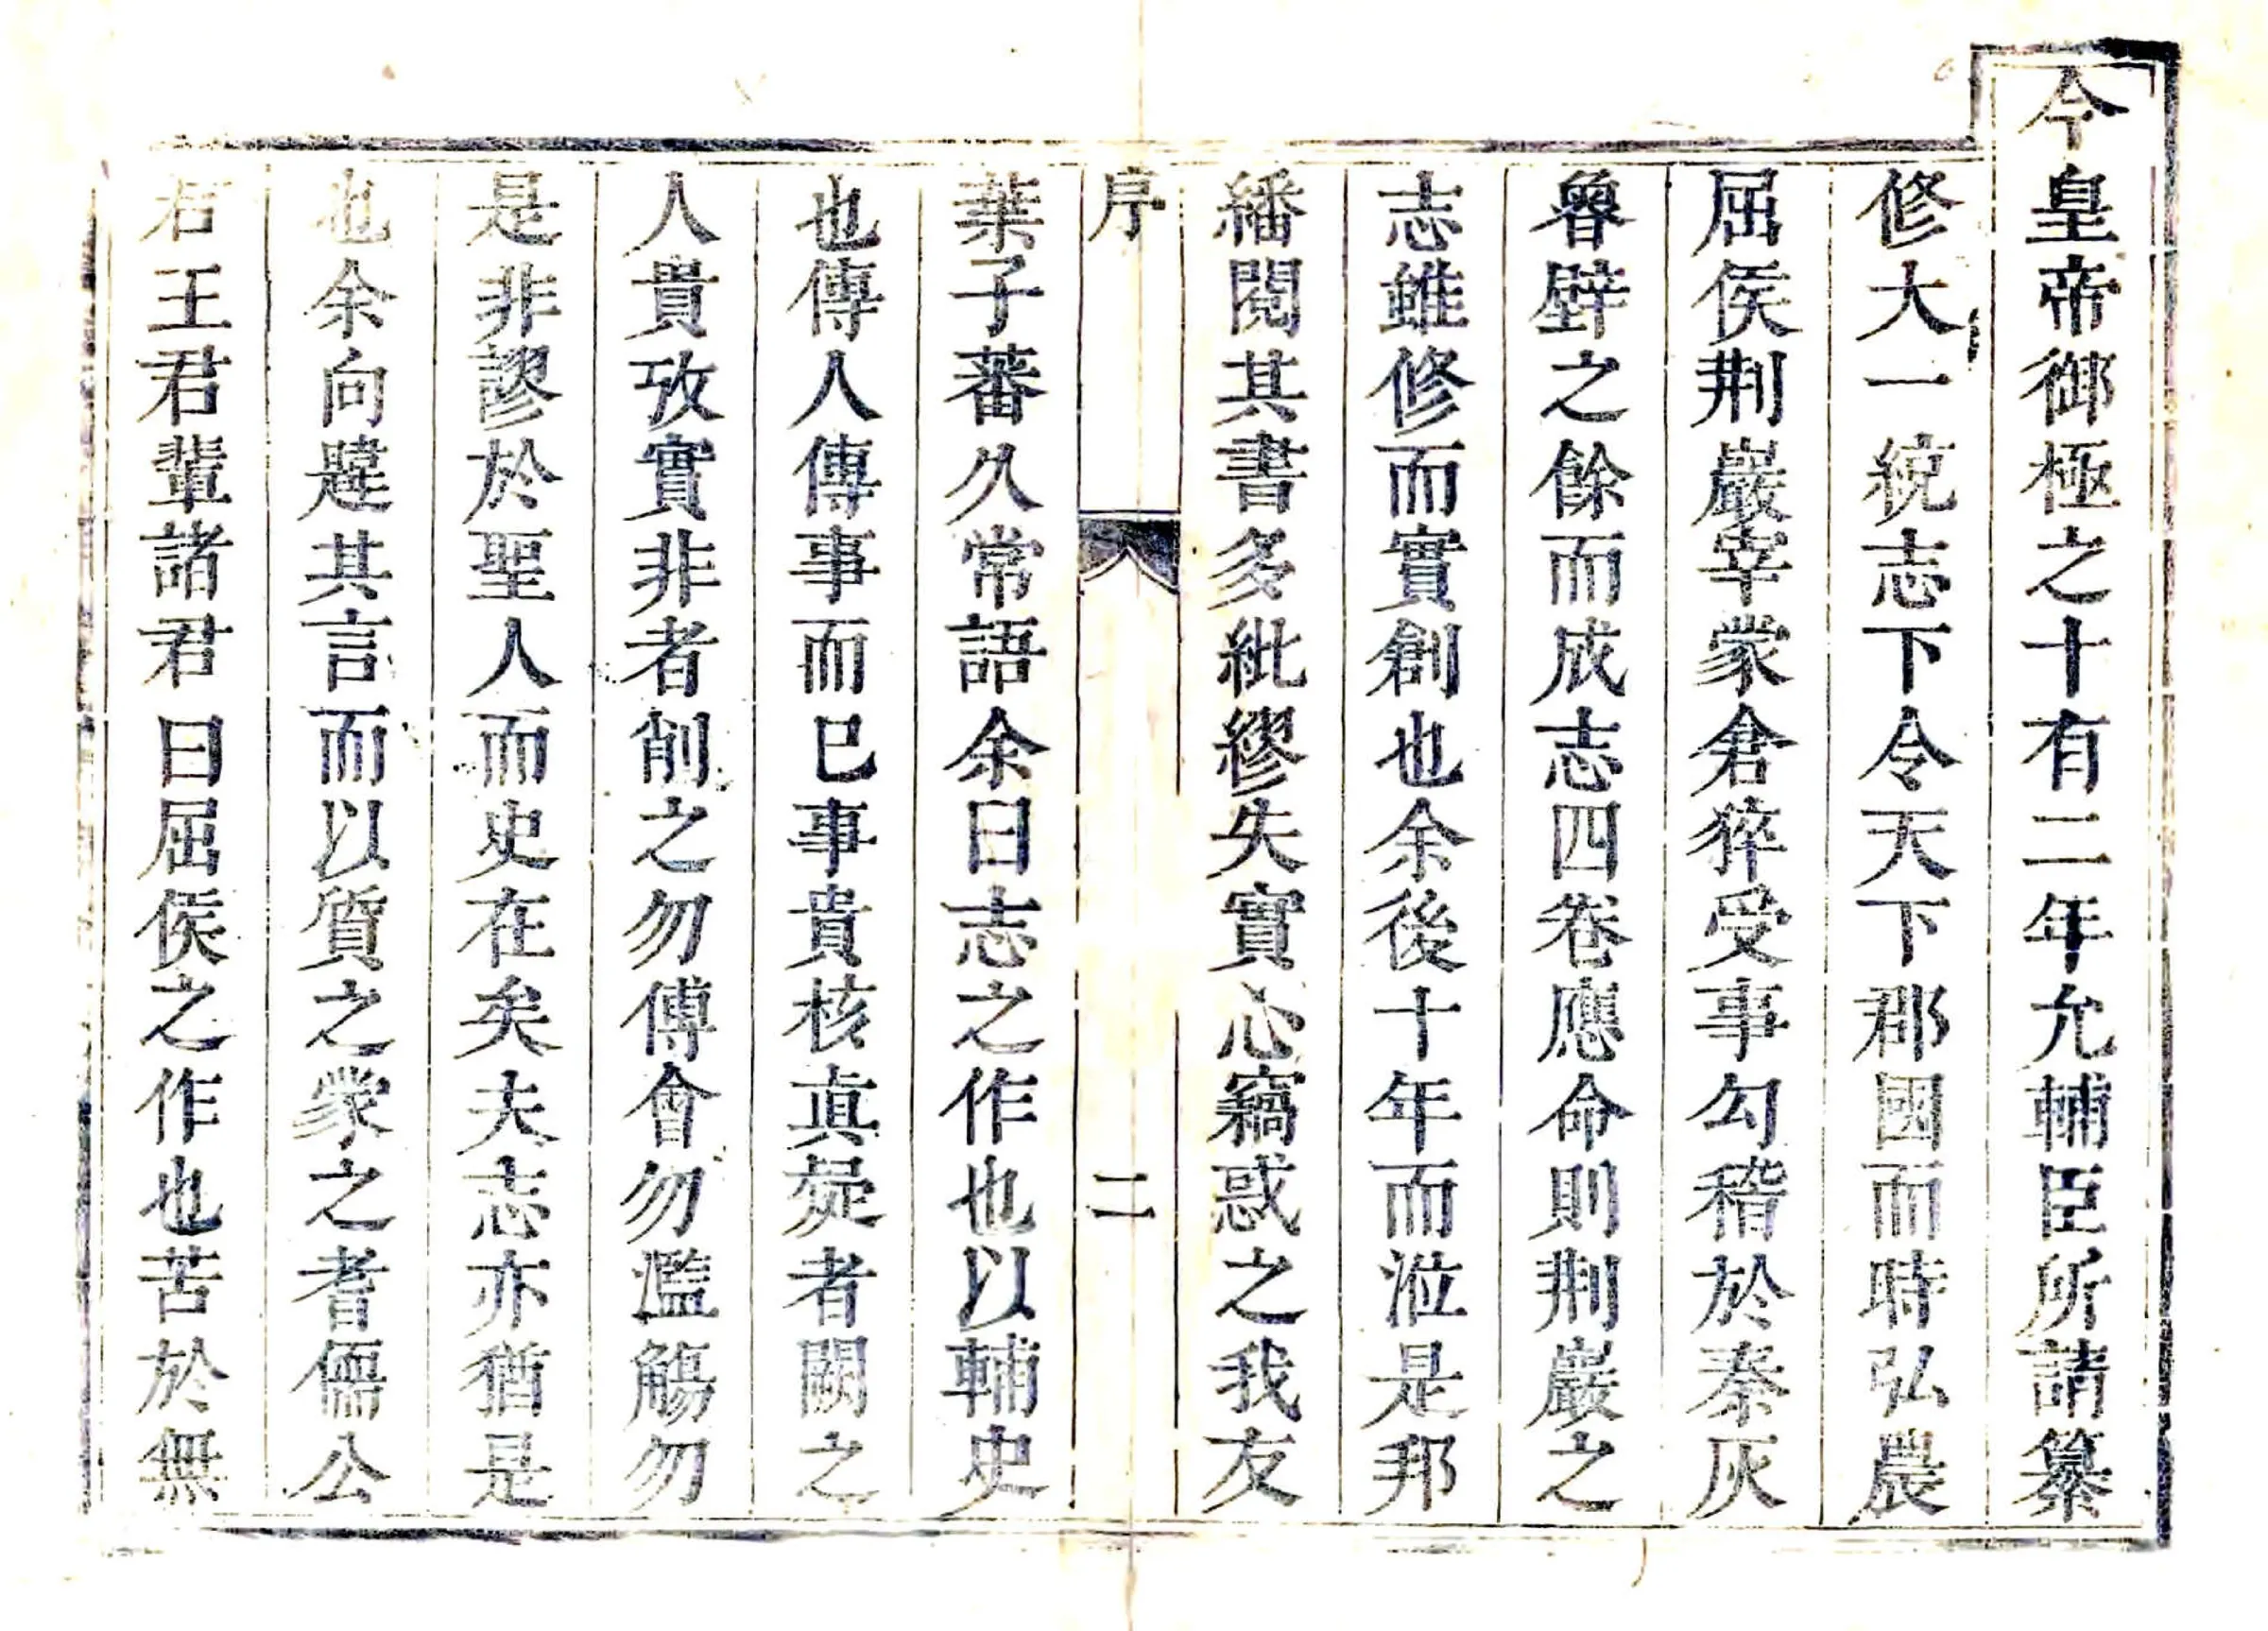 今皇帝御極之十有二年允輔臣所請纂
修大一統志下令天下郡國而時弘農
屈侯荆巖宰蒙倉猝受事勾稽於秦灰
魯壁之餘而成志四卷應命則荆巖之
志雖修而實創也余後十年而涖是邦
繙閱其書多紕繆失實心竊惑之我友
序
二
葉子蕃久常語余曰志之作也以輔史
也傳人傳事而已事貴核真疑者闕之
人貴攷實非者削之勿傅會勿濫觴勿
是非謬於聖人而史在矣夫志亦猶是
也余向韙其言而以質之蒙之耆儒公
君王君輩諸君曰屈侯之作也苦於無